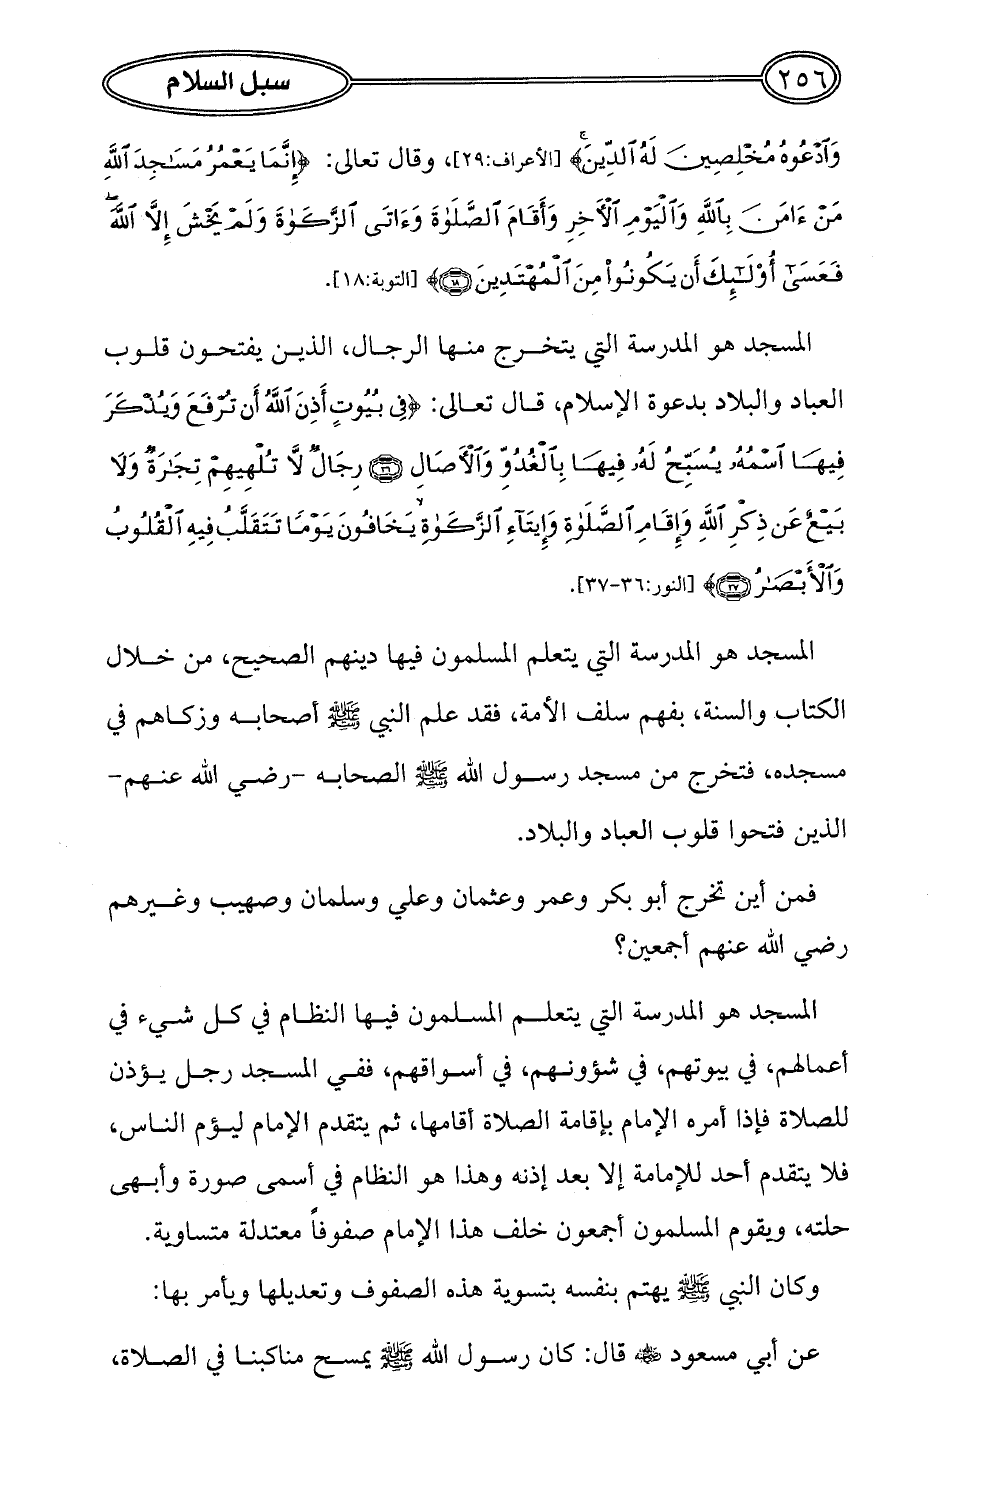 ٢٥٦ سبل السلام
وَٱدْعُوهُ مُخْلِصِينَ لَهُ ٱلدِّينَ ۚ﴾ [الأعراف:٢٩]، وقال تعالى: ﴿إِنَّمَا يَعْمُرُ مَسَٰجِدَ ٱللَّهِ
مَنْ ءَامَنَ بِٱللَّهِ وَٱلْيَوْمِ ٱلْأَخِرِ وَأَقَامَ ٱلصَّلَوٰةَ وَءَاتَى ٱلزَّكَوٰةَ وَلَمْ يَخْشَ إِلَّا ٱللَّهَ ۖ
فَعَسَىٰٓ أُوْلَٰٓئِكَ أَن يَكُونُواْ مِنَ ٱلْمُهْتَدِينَ ١٨﴾ [التوبة:١٨].
المسجد هو المدرسة التي يتخرج منها الرجال، الذين يفتحون قلوب
العباد والبلاد بدعوة الإسلام، قال تعالى: ﴿فِي بُيُوتٍ أَذِنَ ٱللَّهُ أَن تُرْفَعَ وَيُذْكَرَ
فِيهَا ٱسْمُهُۥ يُسَبِّحُ لَهُۥ فِيهَا بِٱلْغُدُوِّ وَٱلْأَصَالِ ٣٦ رِجَالٌ لَّا تُلْهِيهِمْ تِجَٰرَةٌ وَلَا
بَيْعٌ عَن ذِكْرِ ٱللَّهِ وَإِقَامِ ٱلصَّلَوٰةِ وَإِيتَآءِ ٱلزَّكَوٰةِ ۙ يَخَافُونَ يَوْمًا تَتَقَلَّبُ فِيهِ ٱلْقُلُوبُ
وَٱلْأَبْصَٰرُ ٣٧﴾ [النور:٣٦-٣٧].
المسجد هو المدرسة التي يتعلم المسلمون فيها دينهم الصحيح، من خلال
الكتاب والسنة، بفهم سلف الأمة، فقد علم النبي ﷺ أصحابه وزكاهم في
مسجده، فتخرج من مسجد رسول الله ﷺ الصحابه -رضي الله عنهم-
الذين فتحوا قلوب العباد والبلاد.
فمن أين تخرج أبو بكر وعمر وعثمان وعلي وسلمان وصهيب وغيرهم
رضي الله عنهم أجمعين؟
المسجد هو المدرسة التي يتعلم المسلمون فيها النظام في كل شيء في
أعمالهم، في بيوتهم، في شؤونهم، في أسواقهم، ففي المسجد رجل يؤذن
للصلاة فإذا أمره الإمام بإقامة الصلاة أقامها، ثم يتقدم الإمام ليؤم الناس،
فلا يتقدم أحد للإمامة إلا بعد إذنه وهذا هو النظام في أسمى صورة وأبهى
حلته، ويقوم المسلمون أجمعون خلف هذا الإمام صفوفاً معتدلة متساوية.
وكان النبي ﷺ يهتم بنفسه بتسوية هذه الصفوف وتعديلها ويأمر بها:
عن أبي مسعود رضي الله عنه قال: كان رسول الله ﷺ يمسح مناكبنا في الصلاة،